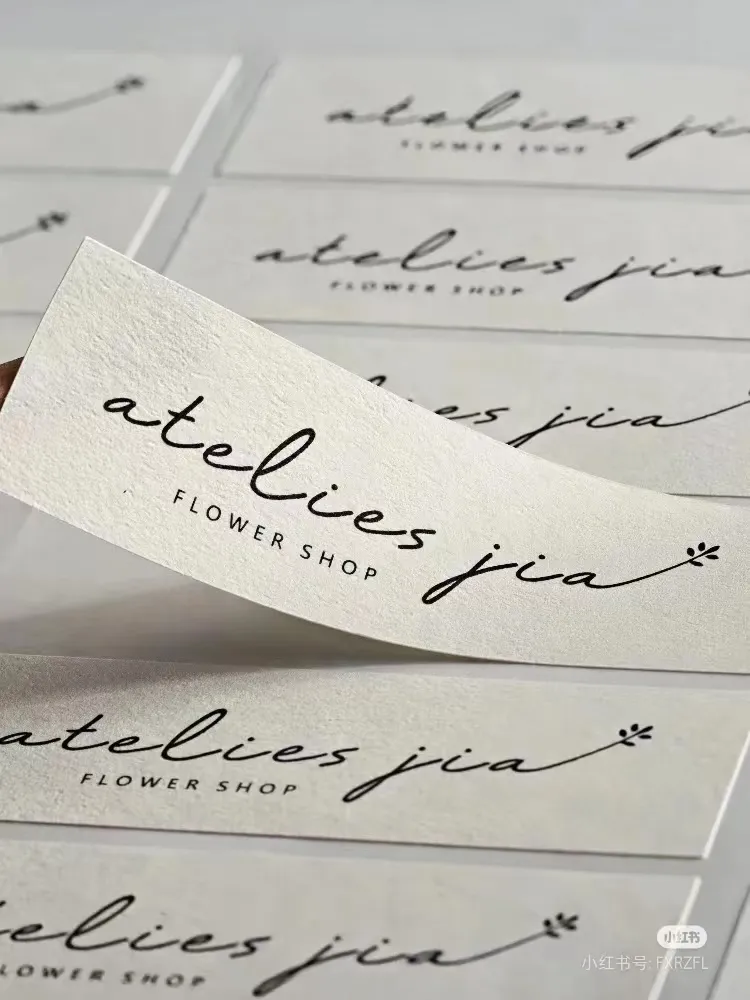 atelies jia
FLOWER SHOP
atelies jia
FLOWER SHOP
jia
atelies jia
FLOWER SHOP
atelies jia
FLOWER SHOP
jia
小红书
小红书号: FXRZFL